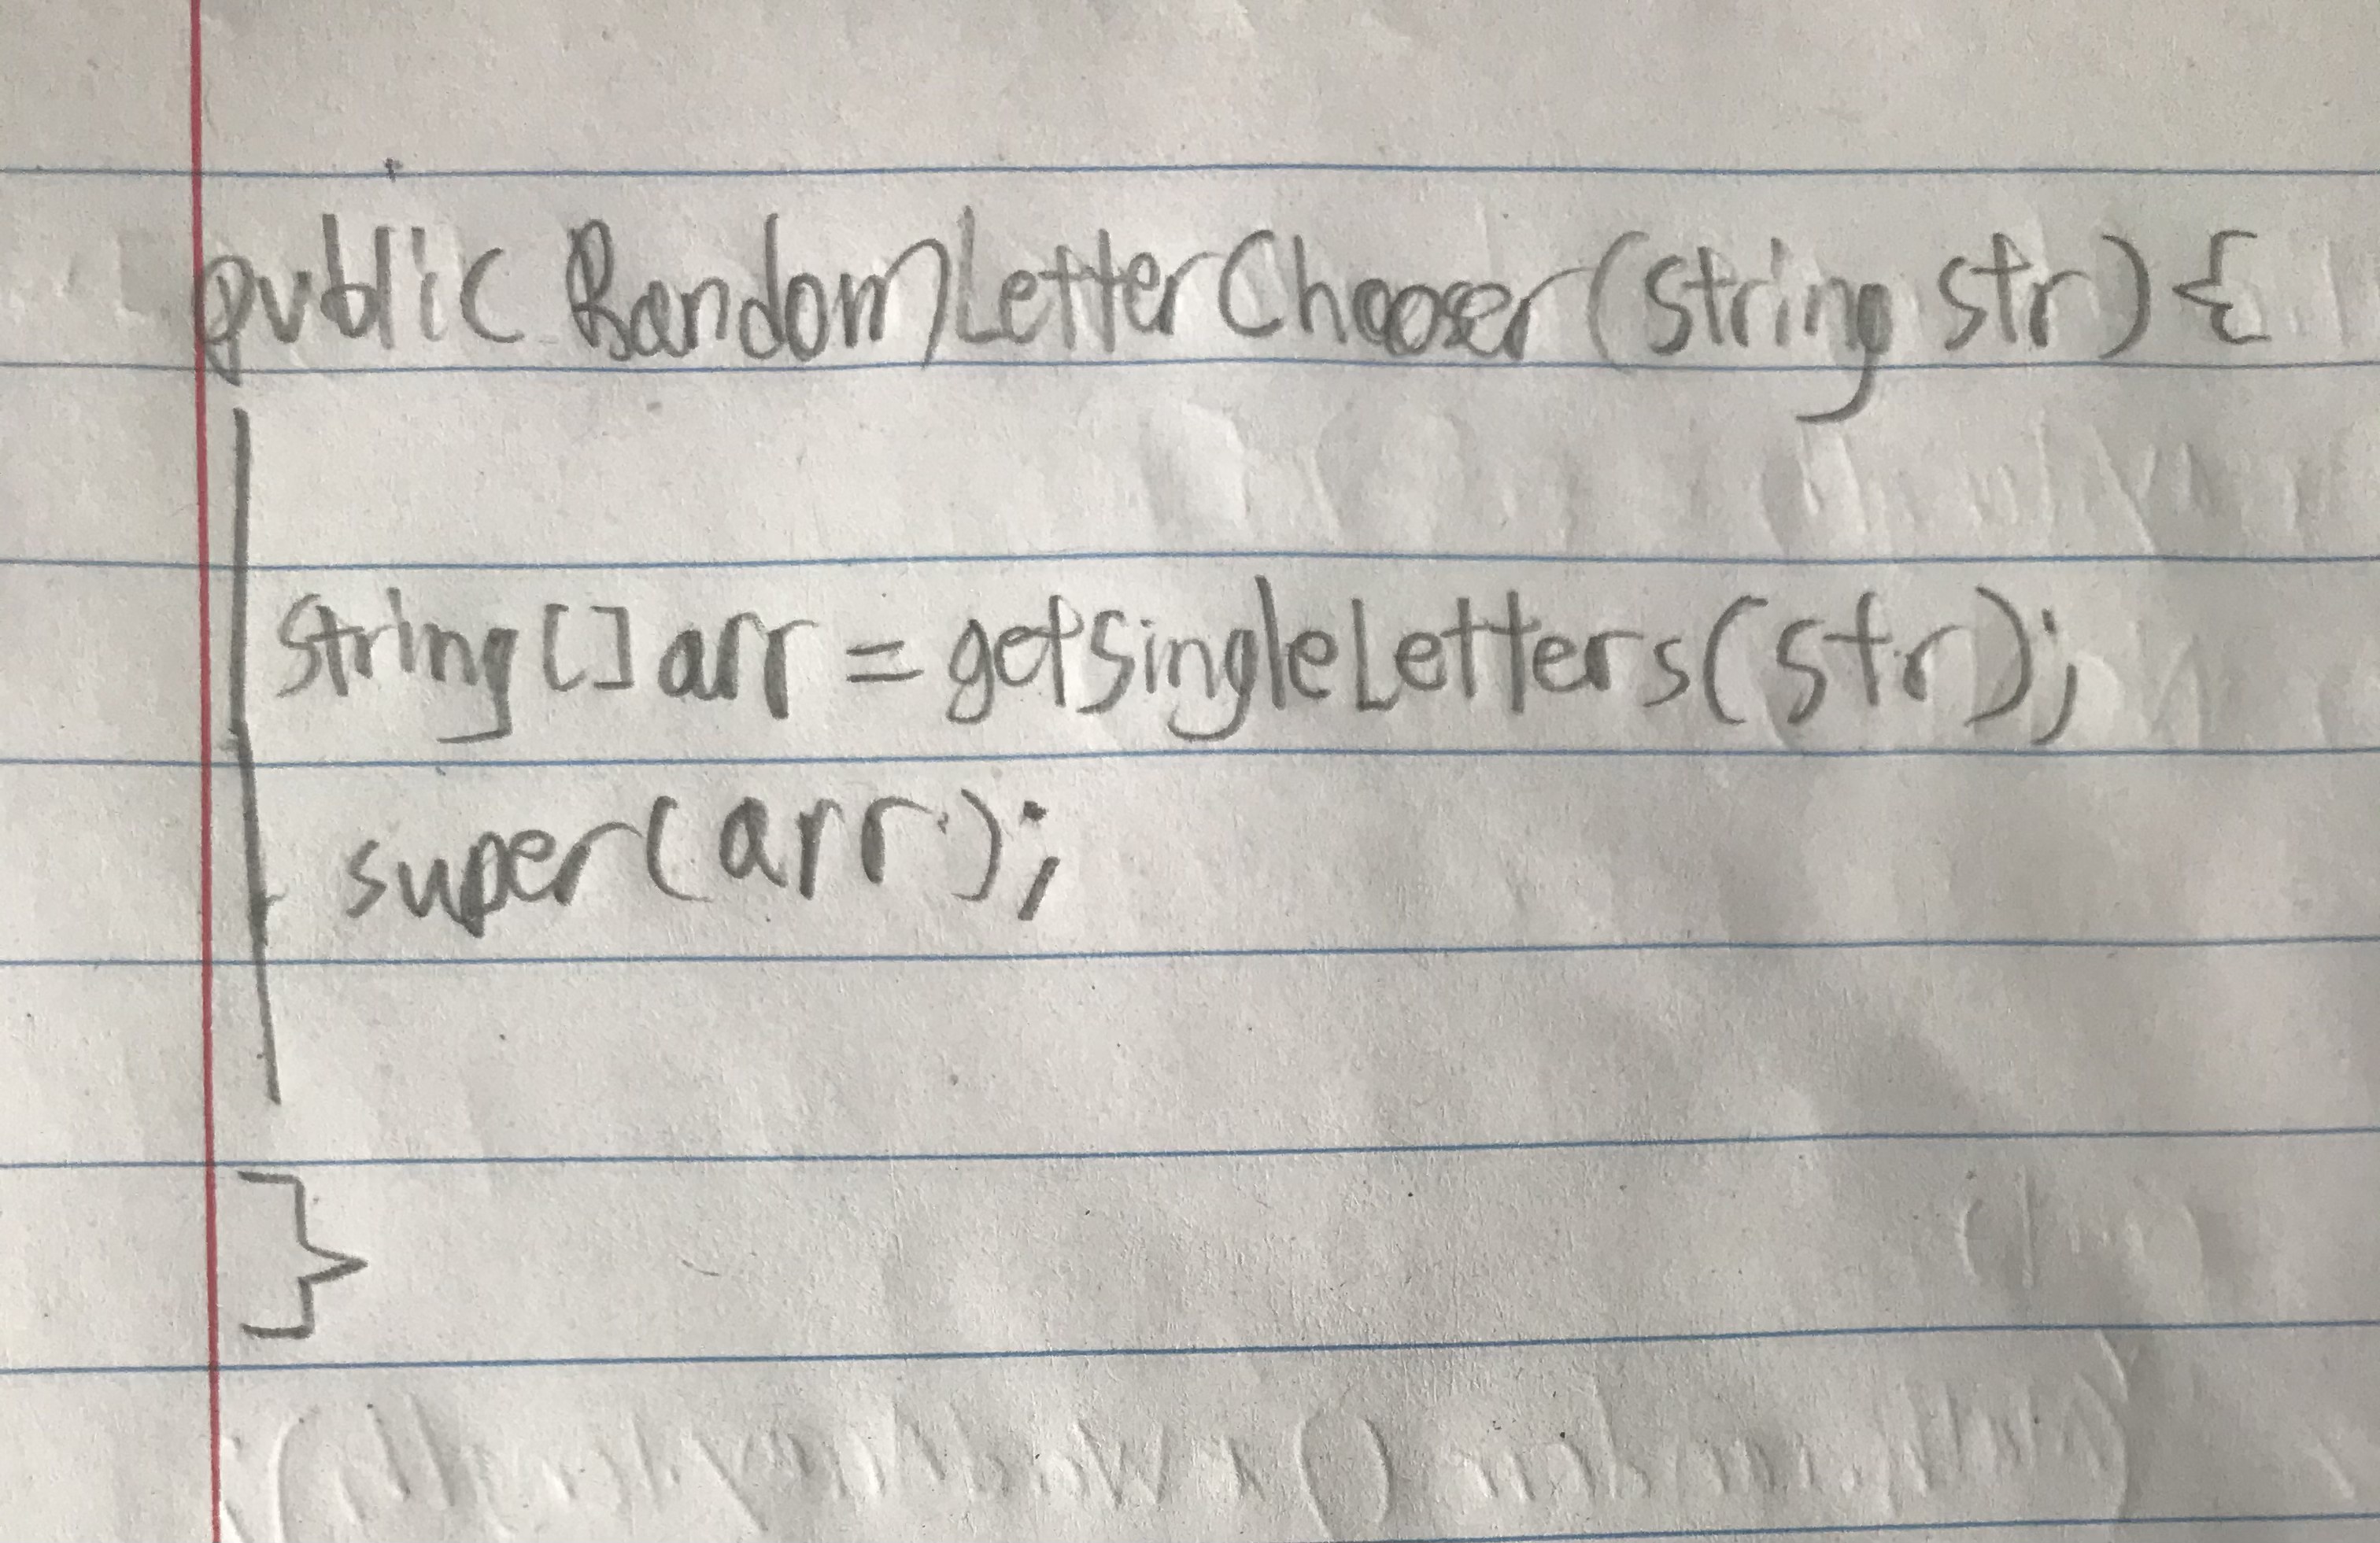 public RandomLetterChooser(String str){
String[] arr = getSingleLetters(str);
super(arr);
}